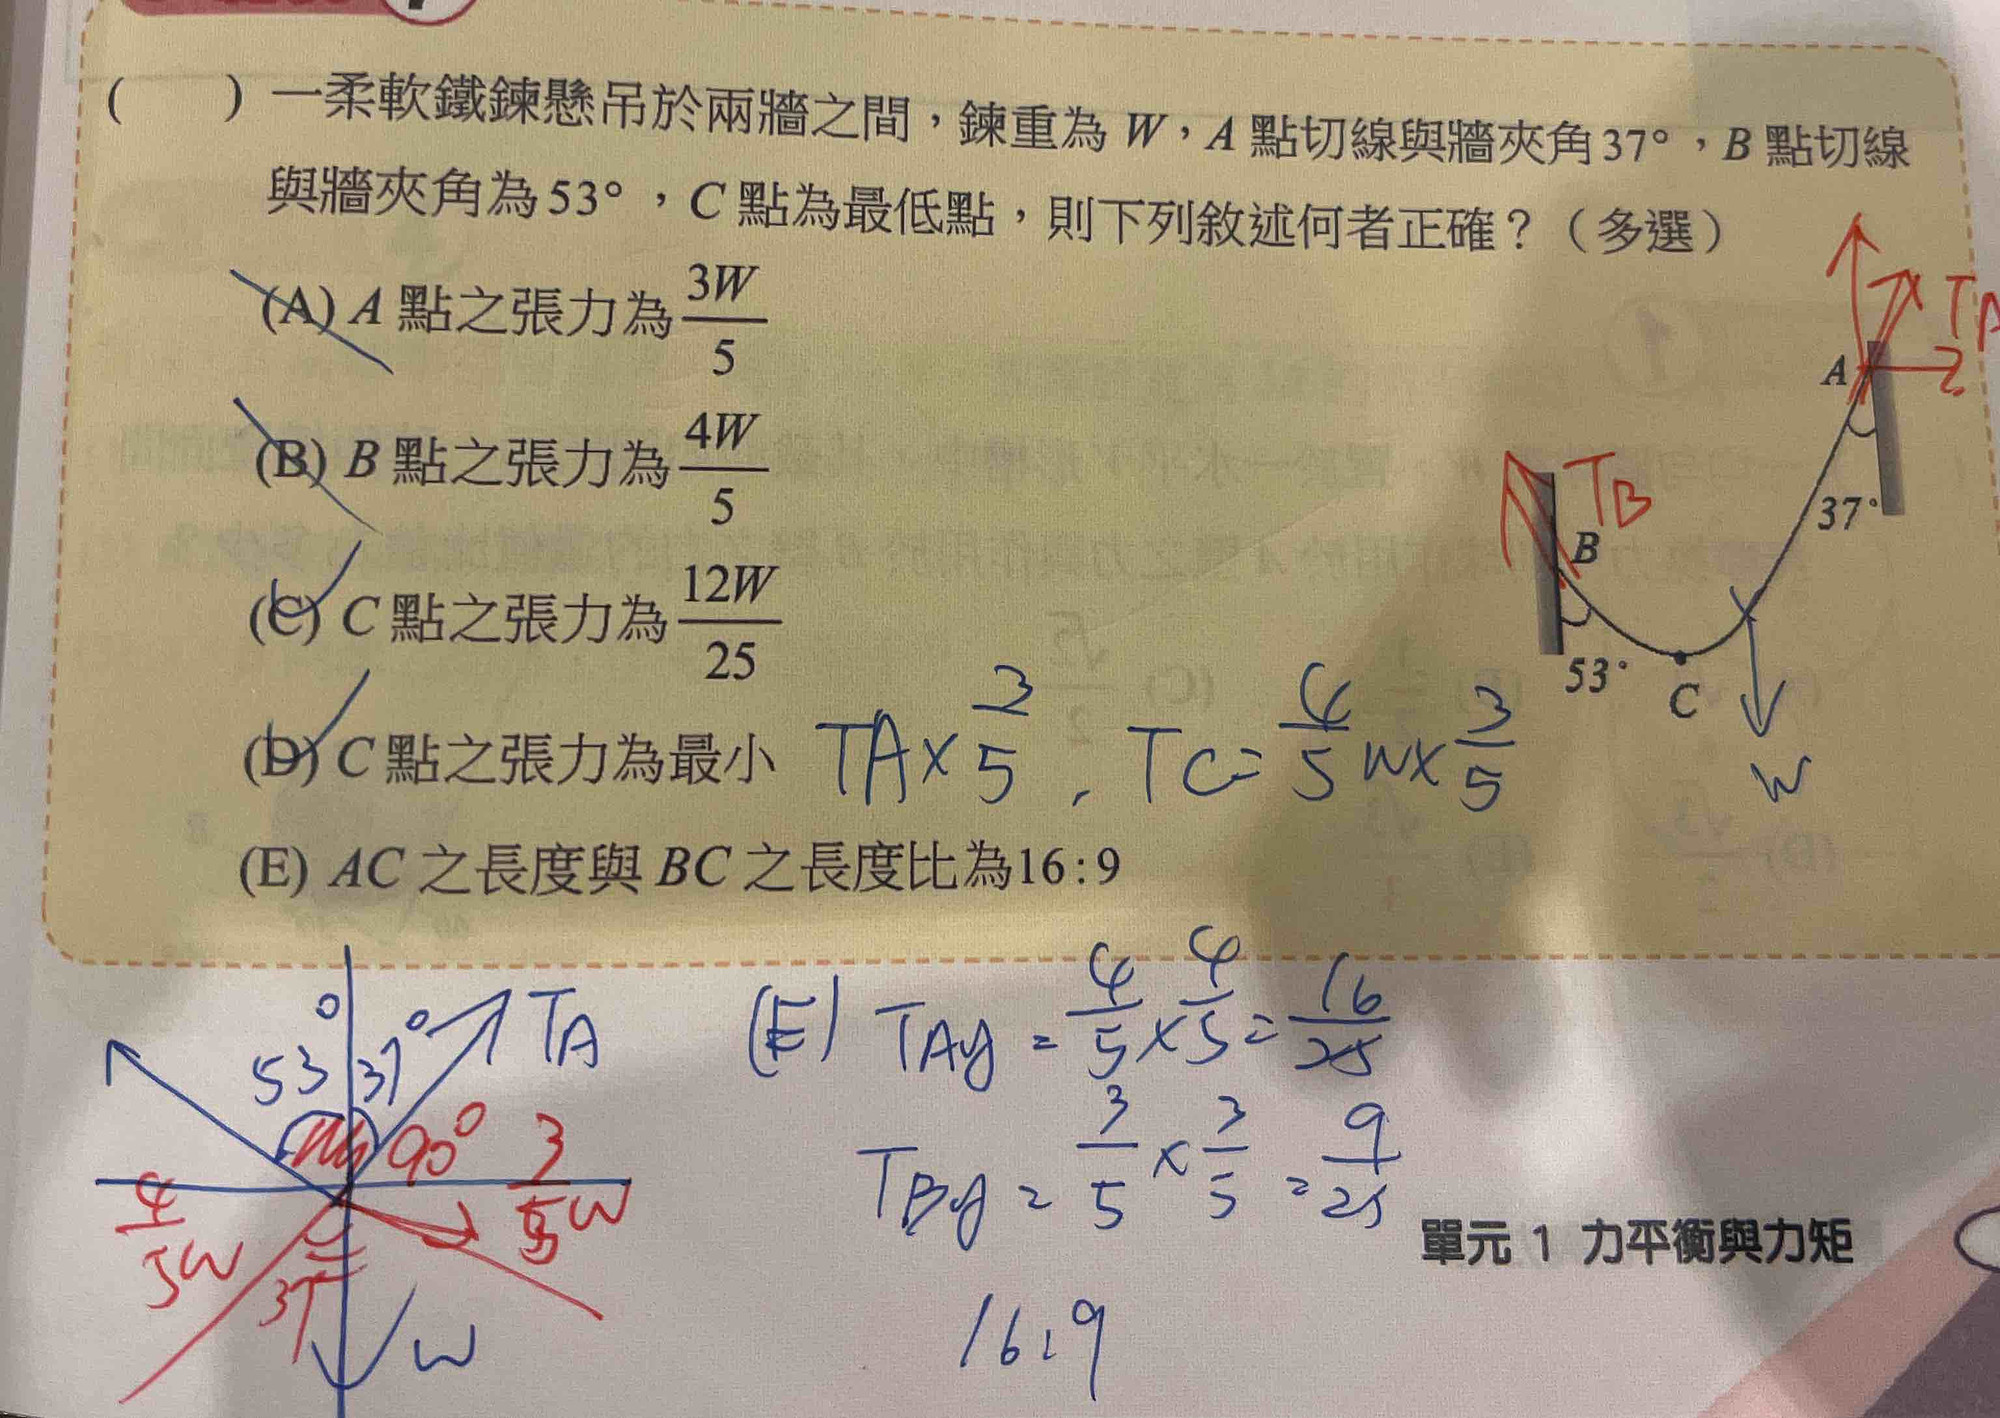 (　　) 一柔軟鐵鍊懸吊於兩牆之間，鍊重為 W，A 點切線與牆夾角37°，B 點切線
與牆夾角為53°，C 點為最低點，則下列敘述何者正確？（多選）
(A) A 點之張力為 3W/5
(B) B 點之張力為 4W/5
(C) C 點之張力為 12W/25
(D) C 點之張力為最小
TA × 3/5 , TC = 4/5 W × 3/5
(E) AC 之長度與 BC 之長度比為16:9
TA
A
TB
B
37°
53°
C
W
53° 37° TA
90° 3/5 W
4/5 W
37
W
(E) TAy = 4/5 × 4/5 = 16/25
TBy = 3/5 × 3/5 = 9/25
16:9
單元 1 力平衡與力矩